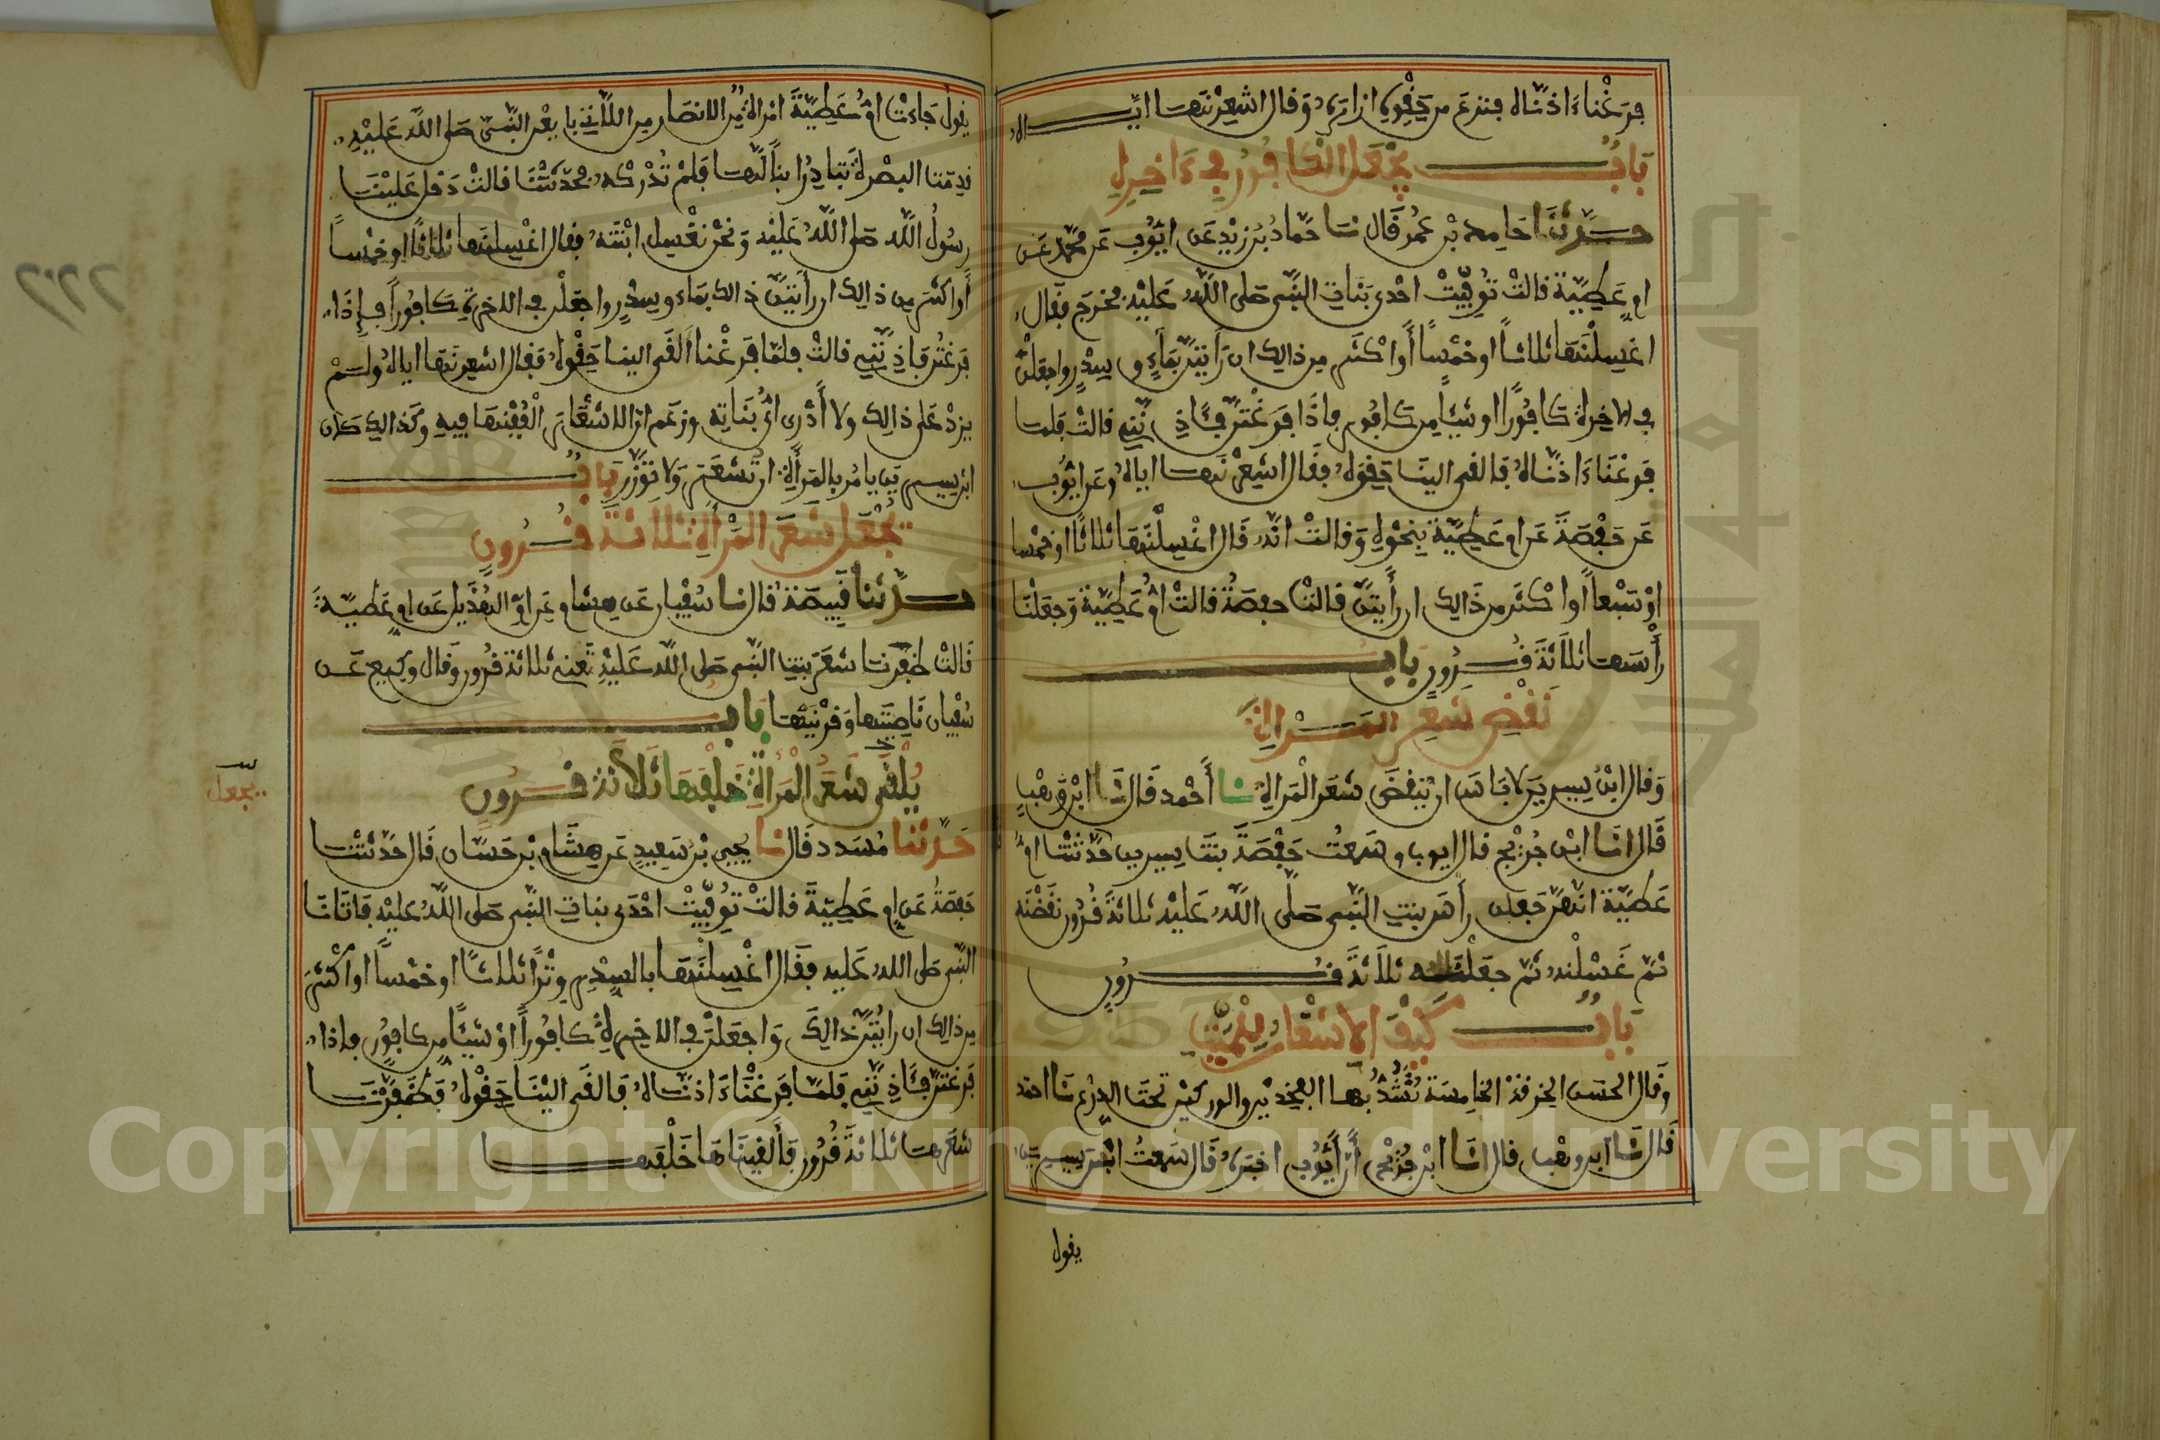 فرغناءاذناه فنزع من حقوه ازاره وقال اشعرنها اياه
باب يجعل الكافور في ءاخره
حدثنا حامد بن عمر قال نا حماد بن زيد عن ايوب عن محمد عن
ام عطية قالت توفيت احدى بنات النبي صلى الله عليه فخرج فقال
اغسلنها ثلاثا او خمسا أو اكثر من ذالك ان رأيتن بماء وسدر واجعلن
في الاخرة كافورا او شيئا من كافور فاذا فرغتن فئاذنني قالت فلما
فرغناءاذناه فالقى الينا حقوه فقال اشعرنها اياه وعن ايوب
عن حفصة عن ام عطية بنحوه وقالت انه قال اغسلنها ثلاثا او خمسا
او سبعا أو اكثر من ذالك ان رأيتن قالت حفصة قالت ام عطية وجعلنا
رأسها ثلاثة قرون باب
نقض شعر المرأة
وقال ابن سيرين لا باس ان ينقض شعر المراة نا أحمد قال نا ابن وهب
قال انا ابن جريج قال ايوب وسمعت حفصة بنت سيرين حدثتنا ام
عطية انهن جعلن رأس بنت النبي صلى الله عليه ثلاثة قرون نقضنه
ثم غسلنه ثم جعلنه ثلاثة قرون
باب كيف الاشعار للميت
وقال الحسن الخرقة الخامسة تشد بها الفخذين والوركين تحت الدرع نا احمد
قال نا ابن وهب قال انا ابن جريج أن أيوب اخبره قال سمعت ابن سيرين
يقول
يقول جاءت ام عطية امرأة من الانصار من اللاتي بايعن النبي صلى الله عليه
قدمت البصرة تبادر ابنا لها فلم تدركه فحدثتنا قالت دخل علينا
رسول الله صلى الله عليه ونحن نغسل ابنته فقال اغسلنها ثلاثا او خمسا
أو اكثر من ذالك ان رأيتن ذالك بماء وسدر واجعلن في الاخرة كافورا فإذا
فرغتن فاذنني قالت فلما فرغنا ألقى الينا حقوه فقال اشعرنها اياه ولم
يزد على ذالك ولا أدرى اي بناته وزعم ان الاشعار الففنها فيه وكذالك كان
ابن سيرين يامر بالمرأة ان تشعر ولا توزر باب
يجعل شعر المرأة ثلاثة قرون
حدثنا قبيصة قال نا سفيان عن هشام عن ام الهذيل عن ام عطية
قالت ضفرنا شعر بنت النبي صلى الله عليه تعني ثلاثة قرون وقال وكيع عن
سفيان ناصيتها وقرنيها باب
يلقى شعر المرأة خلفها ثلاثة قرون
يجعل
حدثنا مسدد قال نا يحيى بن سعيد عن هشام بن حسان قال حدثتنا
حفصة عن ام عطية قالت توفيت احدى بنات النبي صلى الله عليه فاتانا
النبي صلى الله عليه فقال اغسلنها بالسدر وترا ثلاثا او خمسا او أكثر
من ذالك ان رايتن ذالك واجعلن في الاخرة كافورا او شيئا من كافور فإذا
فرغتن فئاذنني فلما فرغناءاذناه فالقى الينا حقوه فضفرنا
شعرها ثلاثة قرون فألقيناها خلفها
Copyright © King Saud University